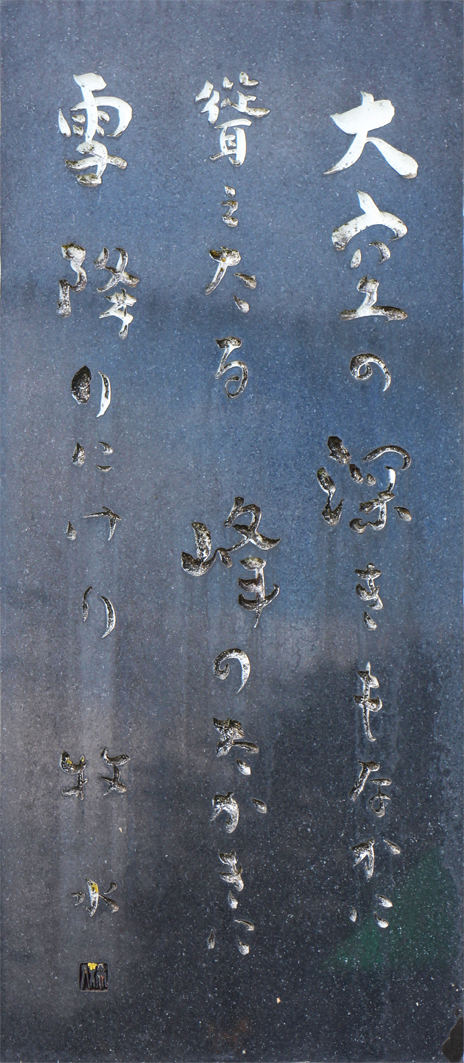 大空の深きもなかに
聳えたる峰のたかきに
雪降りにけり 牧水